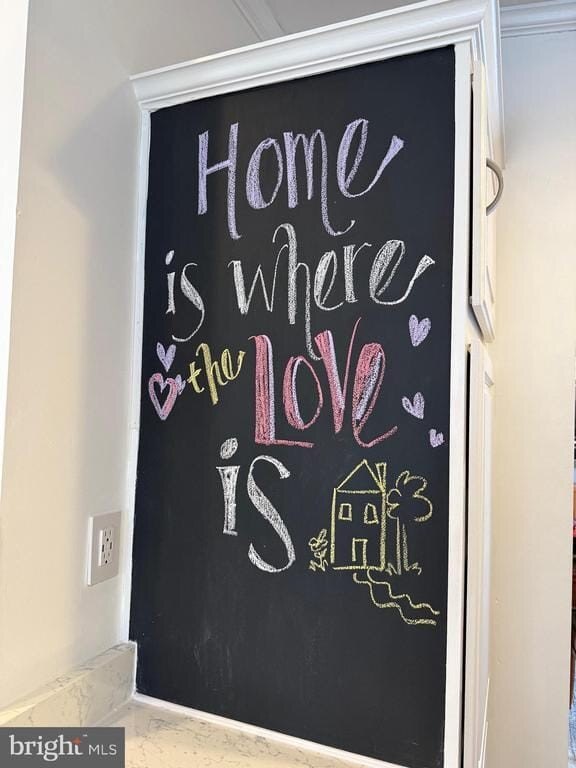 Home
is where
the Love
is
bright MLS